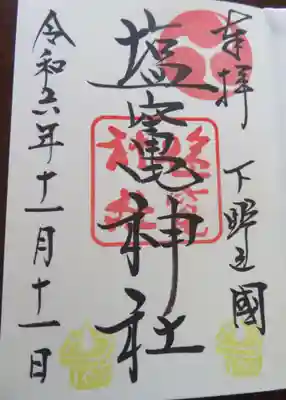 奉拝
下野之國
塩竈神社
令和六年十一月十一日